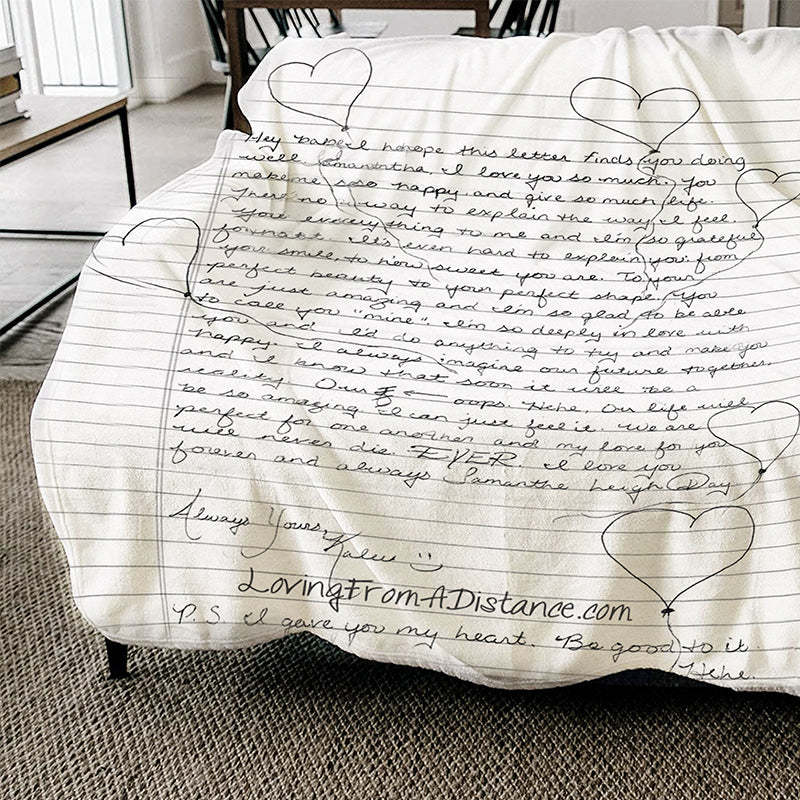 Hey babe I hope this letter finds you doing
well Samantha. I love you so much. You
make me so so happy and give so much life.
There's no way to explain the way I feel.
You're everything to me and I'm so grateful
for that. It's even hard to explain you. from
your smile, to how sweet you are. To your
perfect beauty to your perfect shape. You
are just amazing and I'm so glad to be able
to call you "mine". I'm so deeply in love with
you and I'd do anything to try and make you
happy. I always imagine our future together.
and I know that soon it will be a
reality. Our ← oops. Hehe. Our life will
be so amazing. I can just feel it. We are
perfect for one another and my love for you
will never die. EVER. I love you
forever and always Samantha Leigh Day
Always Yours,
:)
LovingFromADistance.com
P.S. I gave you my heart. Be good to it.
Hehe.